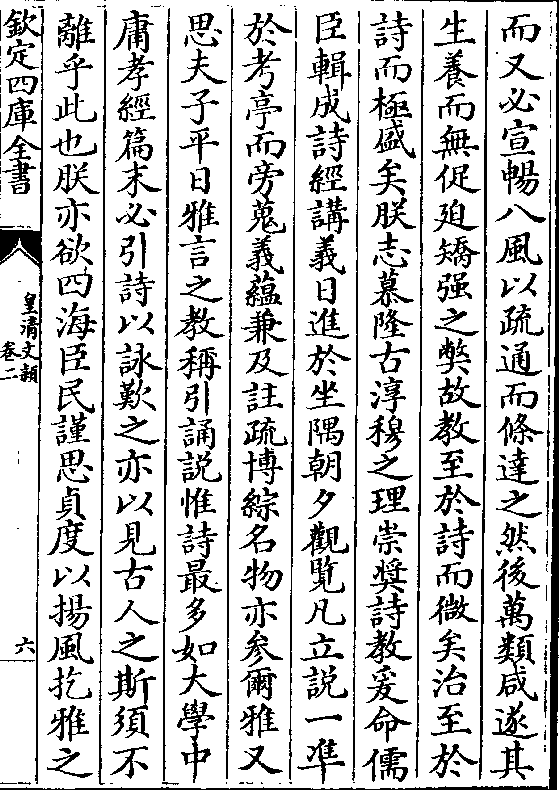 而又必宣暢八風以疏通而條達之然後萬類咸遂其
生養而無促廹矯强之弊故教至於詩而微矣治至於
詩而極盛矣朕志慕隆古淳穆之理崇奨詩教爰命儒
臣輯成詩經講義日進於坐隅朝夕觀覽凡立說一凖
於考亭而旁蒐義蘊兼及註疏博綜名物亦参爾雅又
思夫子平日雅言之教稱引誦説惟詩最多如大學中
庸孝經篇末必引詩以詠歎之亦以見古人之斯須不
離乎此也朕亦欲四海臣民謹思貞度以揚風扢雅之
欽定四庫全書
皇清文穎
卷二
六